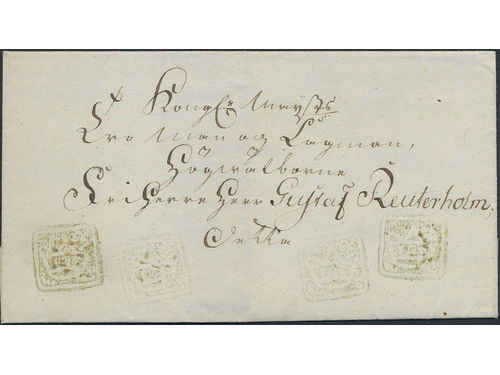 Kongl. Maysts
Tro Man og Lagman,
Högwälborne
Friherre Herr Gustaf Reuterholm.